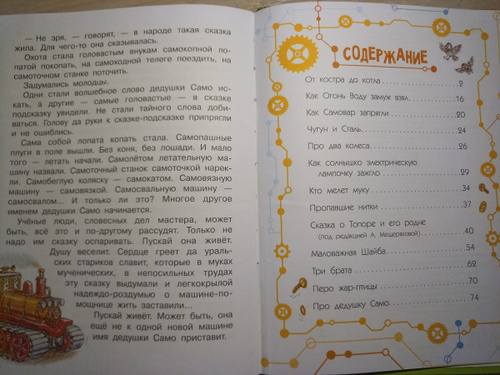 — Не зря, — говорят, — в народе такая сказка
жила. Для чего-то она сказывалась.
Охота стала головастым внукам самокопной ло-
патой покопать, на самоходной телеге поездить, на
самоточном станке поточить.
Задумались молодцы.
Одни стали волшебное слово дедушки Само ис-
кать, а другие — самые головастые — в сказке
подсказку увидели. Не стали тайного слова доби-
ваться. Голову да руки к сказке-подсказке припрягли
и не ошиблись.
Сама собой лопата копать стала. Самопашные
плуги в поле вышли. Без коня, без лошади. И мало
того — летать начали. Самолётом летательную ма-
шину назвали. Самоточный станок самоточкой нарек-
ли. Самобеглую коляску — самокатом. Самовязную
машину — самовязкой. Самосвальную машину —
самосвалом... И только ли это? Многое другое
именем дедушки Само начинается.
Учёные люди, словесных дел мастера, может
быть, всё это и по-другому рассудят. Только не
надо им сказку оспаривать. Пускай она живёт.
Душу веселит. Сердце греет да ураль-
ских стариков славит, которые в муках
мученических, в непосильных трудах
эту сказку выдумали и легкокрылой
надеждо-роздумью о машине-по-
мощнице жить заставили...
Пускай живёт. Может быть, она
ещё не к одной новой машине
имя дедушки Само приставит.
СОДЕРЖАНИЕ
От костра до котла 2
Как Огонь Воду замуж взял 16
Как Самовар запрягли 20
Чугун и Сталь 24
Про два колеса 26
Как солнышко электрическую
лампочку зажгло 29
Кто мелет муку 34
Пропавшие нитки 37
Сказка о Топоре и его родне
(под редакцией А. Мещерякова) 40
Маловажная Шайба 54
Три брата 62
Перо жар-птицы 70
Про дедушку Само 74